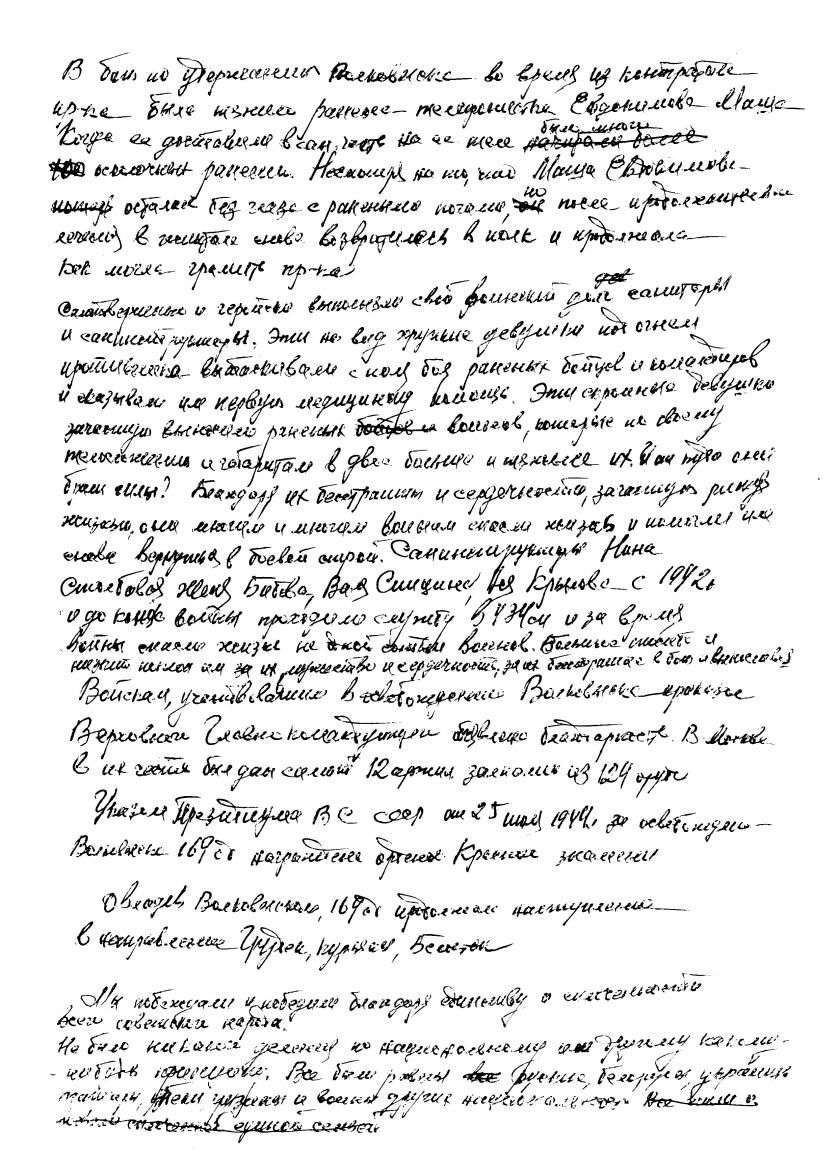 В бою по удержанию Волковыска во время из контратак
пр-ка была тяжело ранена телефонистка Евдокимова Маша
Когда ее доставили в сан. часть на ее теле было много
осколочных ранений. Несмотря на то, что Маша Евдокимова
осталась без глаза с ранеными ногами, но после продолжительного
лечения в госпитале снова возвратилась в полк и продолжала
как могла громить пр-ка
Самоотверженно и геройски выполняли свой воинский долг санитары
и санинструкторы. Эти на вид хрупкие девушки под огнем
противника вытаскивали с поля боя раненых бойцов и командиров
и оказывали им первую медицинскую помощь. Эти скромные девушки
зачастую выносили раненых воинов, которые по своему
телосложению и габаритам в двое больше и тяжелее их. И откуда они
брали силы? Благодаря их бесстрашию и сердечности, зачастую рискуя
жизнью, они многим и многим воинам спасли жизнь и помогли им
снова вернуться в боевой строй. Санинструкторы Нина
Столбовая, Женя Битова, Валя Синцина, Ася Крылова с 1942г
и до конца войны проходили службу в 434сп и за время
войны спасли жизнь не одной сотни воинов. Большое спасибо и
низкий поклон им за их мужество и сердечность, за их бесстрашие в бою
Войскам, участвовавшим в освобождении Волковыска приказом
Верховного Главнокомандующего объявлена благодарность. В Москве
в их честь был дан салют 12 артил залпами из 124 орудий
Указом Президиума ВС СССР от 25 июля 1944г. за освобождение
Волковыска 169сд награждена орденом Красного знамени
Овладев Волковыском, 169сд продолжала наступление
в направлении Грудек, Белосток
Мы побеждали и победили благодаря единству и сплоченности
всего советского народа.
Не было никакого деления по национальному или другому какому-
нибудь признаку. Все были равны русские, белорусы, украинцы
и воины других национальностей